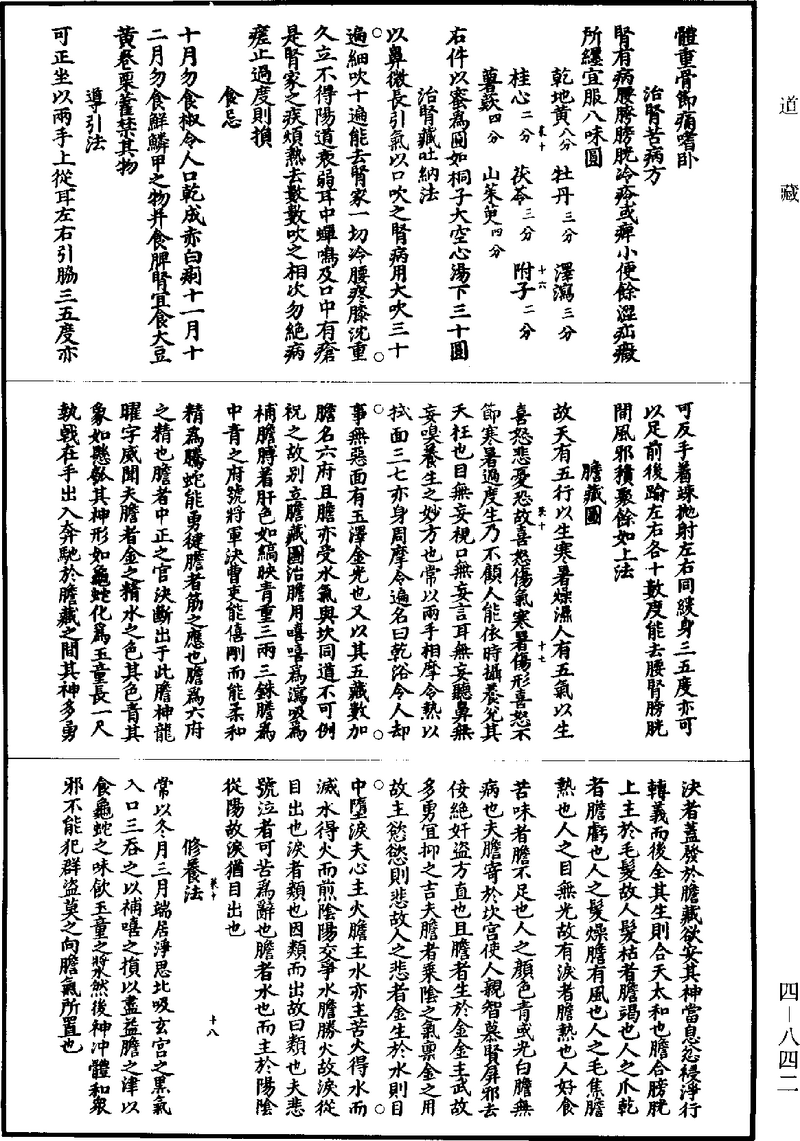 道藏
體重骨節痛嗜卧
治腎苦病方
腎有病腰胯膀胱冷痹或痹小便餘澀疝瘕
所纏宜服八味圓
乾地黃八分 牡丹三分 澤瀉三分
桂心二分 茯苓三分 附子二分
薯蕷四分 山茱萸四分
右件以蜜為圓如桐子大空心湯下三十圓
治腎藏吐納法
以鼻微長引氣以口吹之腎病用大吹三十
遍細吹十遍能去腎家一切冷腰疼膝沈重
久立不得陽道衰弱耳中蟬鳴及口中有瘡
是腎家之疾煩熱去數數吹之相次勿絕病
瘥止過度則損
食忌
十月勿食椒令人口乾成赤白痢十一月十
二月勿食鮮鱗甲之物并食脾腎宜食大豆
黃卷栗藿禁其物
導引法
可正坐以兩手上從耳左右引脇三五度亦
可反手著竦拋射左右同緩身三五度亦可
以足前後踰左右各十數度能去腰腎膀胱
間風邪積聚餘如上法
膽藏圖
故天有五行以生寒暑燥濕人有五氣以生
喜怒悲愛恐故喜怒傷氣寒暑傷形喜怒不
節寒暑過度生乃不顧人能依時攝養免其
夭枉也目無妄視口無妄言耳無妄聽鼻無
妄嗅養生之妙方也常以兩手相摩令熱以
拭面三七亦身周摩令遍名曰乾浴令人却
事無惡面有玉澤金光也又以其五藏數加
膽名六府且膽亦受水氣與坎同道不可例
祝之故別立膽藏圖治膽用嘻嘻為瀉吸為
補膽膊著肝色如縞映青重三兩三銖膽為
中青之府號將軍決曹吏能僖剛而能柔和
精為騰蛇能勇健膽者筋之應也膽為六府
之精也膽者中正之官決斷出于此膽神龍
曜字威明夫膽者金之精水之色其色青其
象如懸瓠其神形如龜蛇化為玉童長一尺
執戟在手出入奔馳於膽藏之間其神多勇
決者蓋發於膽藏欲安其神當息忿穢淨行
轉義而後全其生則合天太和也膽合膀胱
上主於毛髮故人髮枯者膽竭也人之爪乾
者膽虧也人之髮燥膽有風也人之毛焦膽
熱也人之目無光故有淚者膽熱也人好食
苦味者膽不足也人之顏色青或光白膽無
病也夫膽寄於坎宮使人親智慕賢屏邪去
佞絕奸盜方直也且膽者生於金金主武故
多勇宜抑之吉夫膽者乘陰之氣稟金之用
故主慾慾則悲故人之悲者金生於水則目
中墮淚夫心主火膽主水亦主苦火得水而
滅水得火而煎陰陽交爭水膽勝火故淚從
目出也淚者類也因類而出故曰類也夫悲
號泣者可苦為辭也膽者水也而主於陽陰
從陽故淚猶目出也
修養法
常以冬月三月端居淨思北吸玄宮之黑氣
入口三吞之以補嘻之損以盡益膽之津以
食龜蛇之味飲玉童之漿然後神沖體和眾
邪不能犯群盜莫之向膽氣所置也
十六
十七
十八
四—八四二